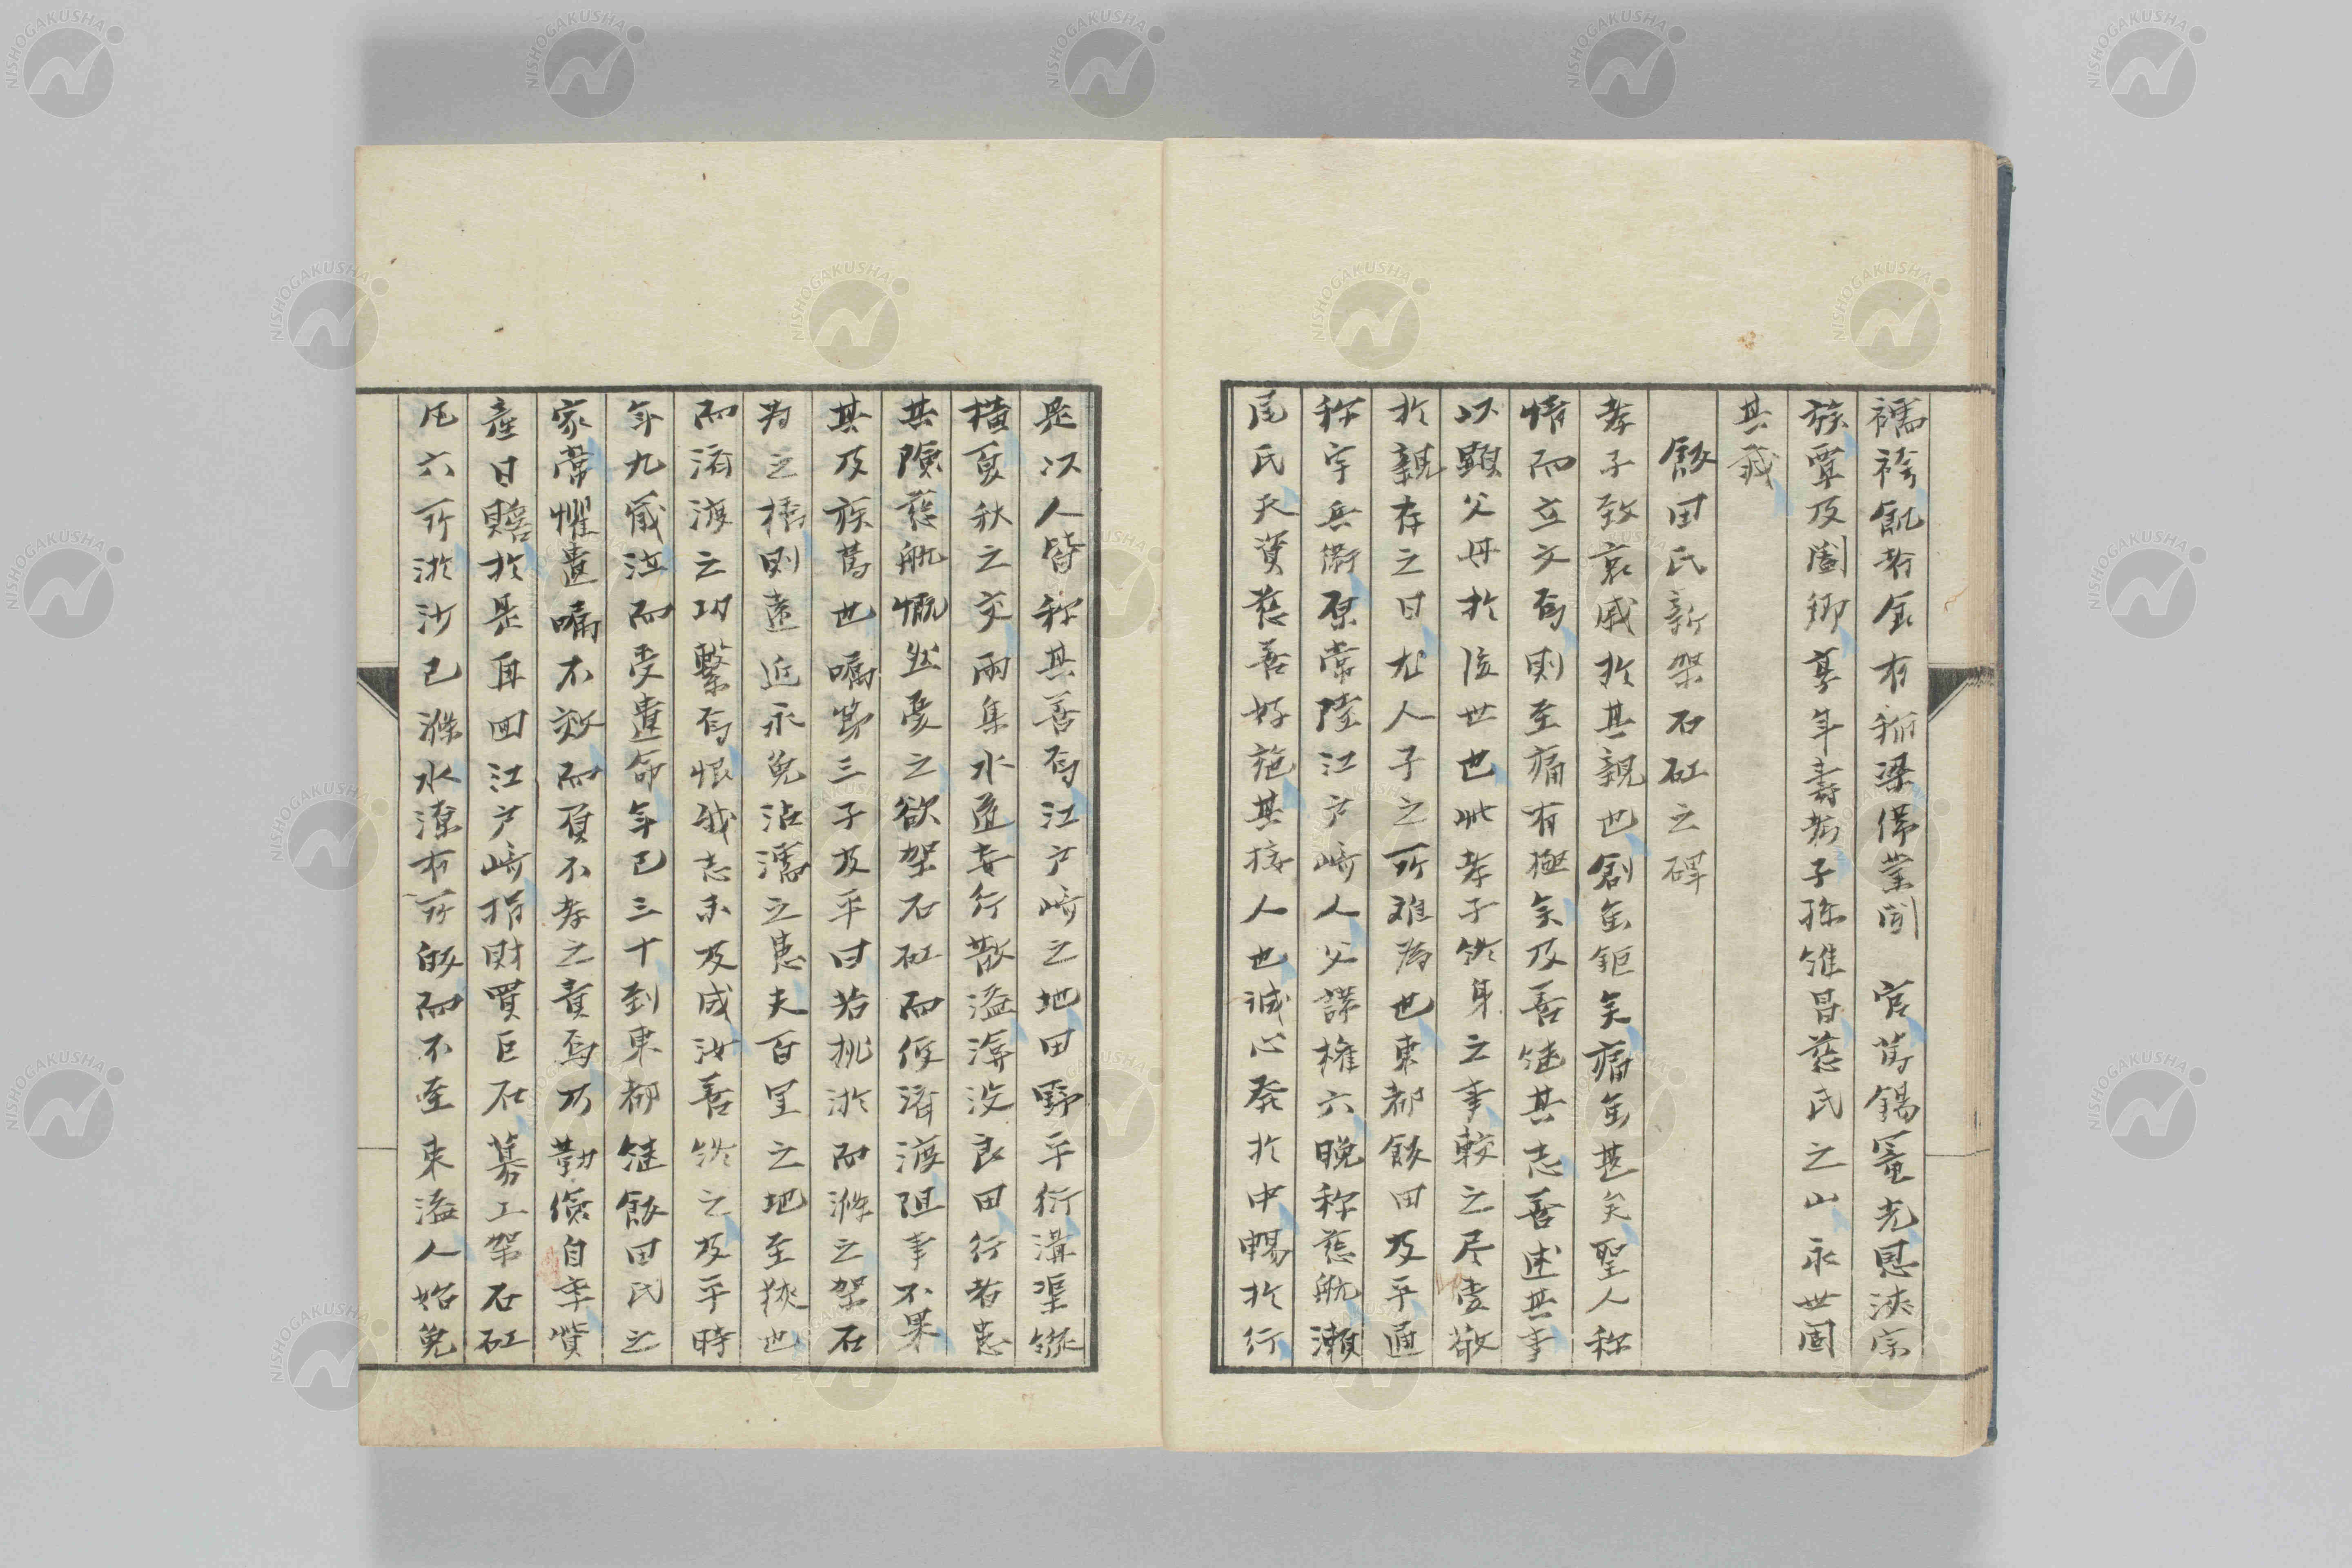 襦袴飢者余有稲粱偉業聞　官万錫寵光恩浹宗
族覃及闔郷享年寿考子孫雖昌慈氏之山永世固
其蔵
飯田氏新架石矼之碑
孝子致哀戚於其親也創鉅矣痛甚矣聖人称
情而立文焉則至痛有極矣及善継其志善述其事
以顕父母於後世也此孝子終身之事較之尽壹敬
於親存之日尤人子之所難為也東都飯田及平通
称宇兵衛原常陸江戸崎人父諱権六晩称慈航瀬
尾氏天資慈善好施其接人也誠心発於中暢於行
是以人皆称其善焉江戸崎之地田野平衍溝渠縦
横夏秋之交雨集水匯壱行散溢渰没良田行者患
其険慈航慨然憂之欲架石矼而便済渡阻事不果
其及疾篤也嘱第三子及平曰若挑淤而滌之架石
為之橋則遠近永免沾濡之患夫百里之地至狭也
而済渡之功繄焉恨我志未及成汝善終之及平時
年九歳泣而受遺命年已三十到東都継飯田氏之
家常懼遺嘱不効而負不孝之責焉乃勤倹自奉貲
産日贍於是再回江戸崎捐財買巨石募工架石矼
凡六所淤沙已滌水潦有所帰而不至東溢人始免